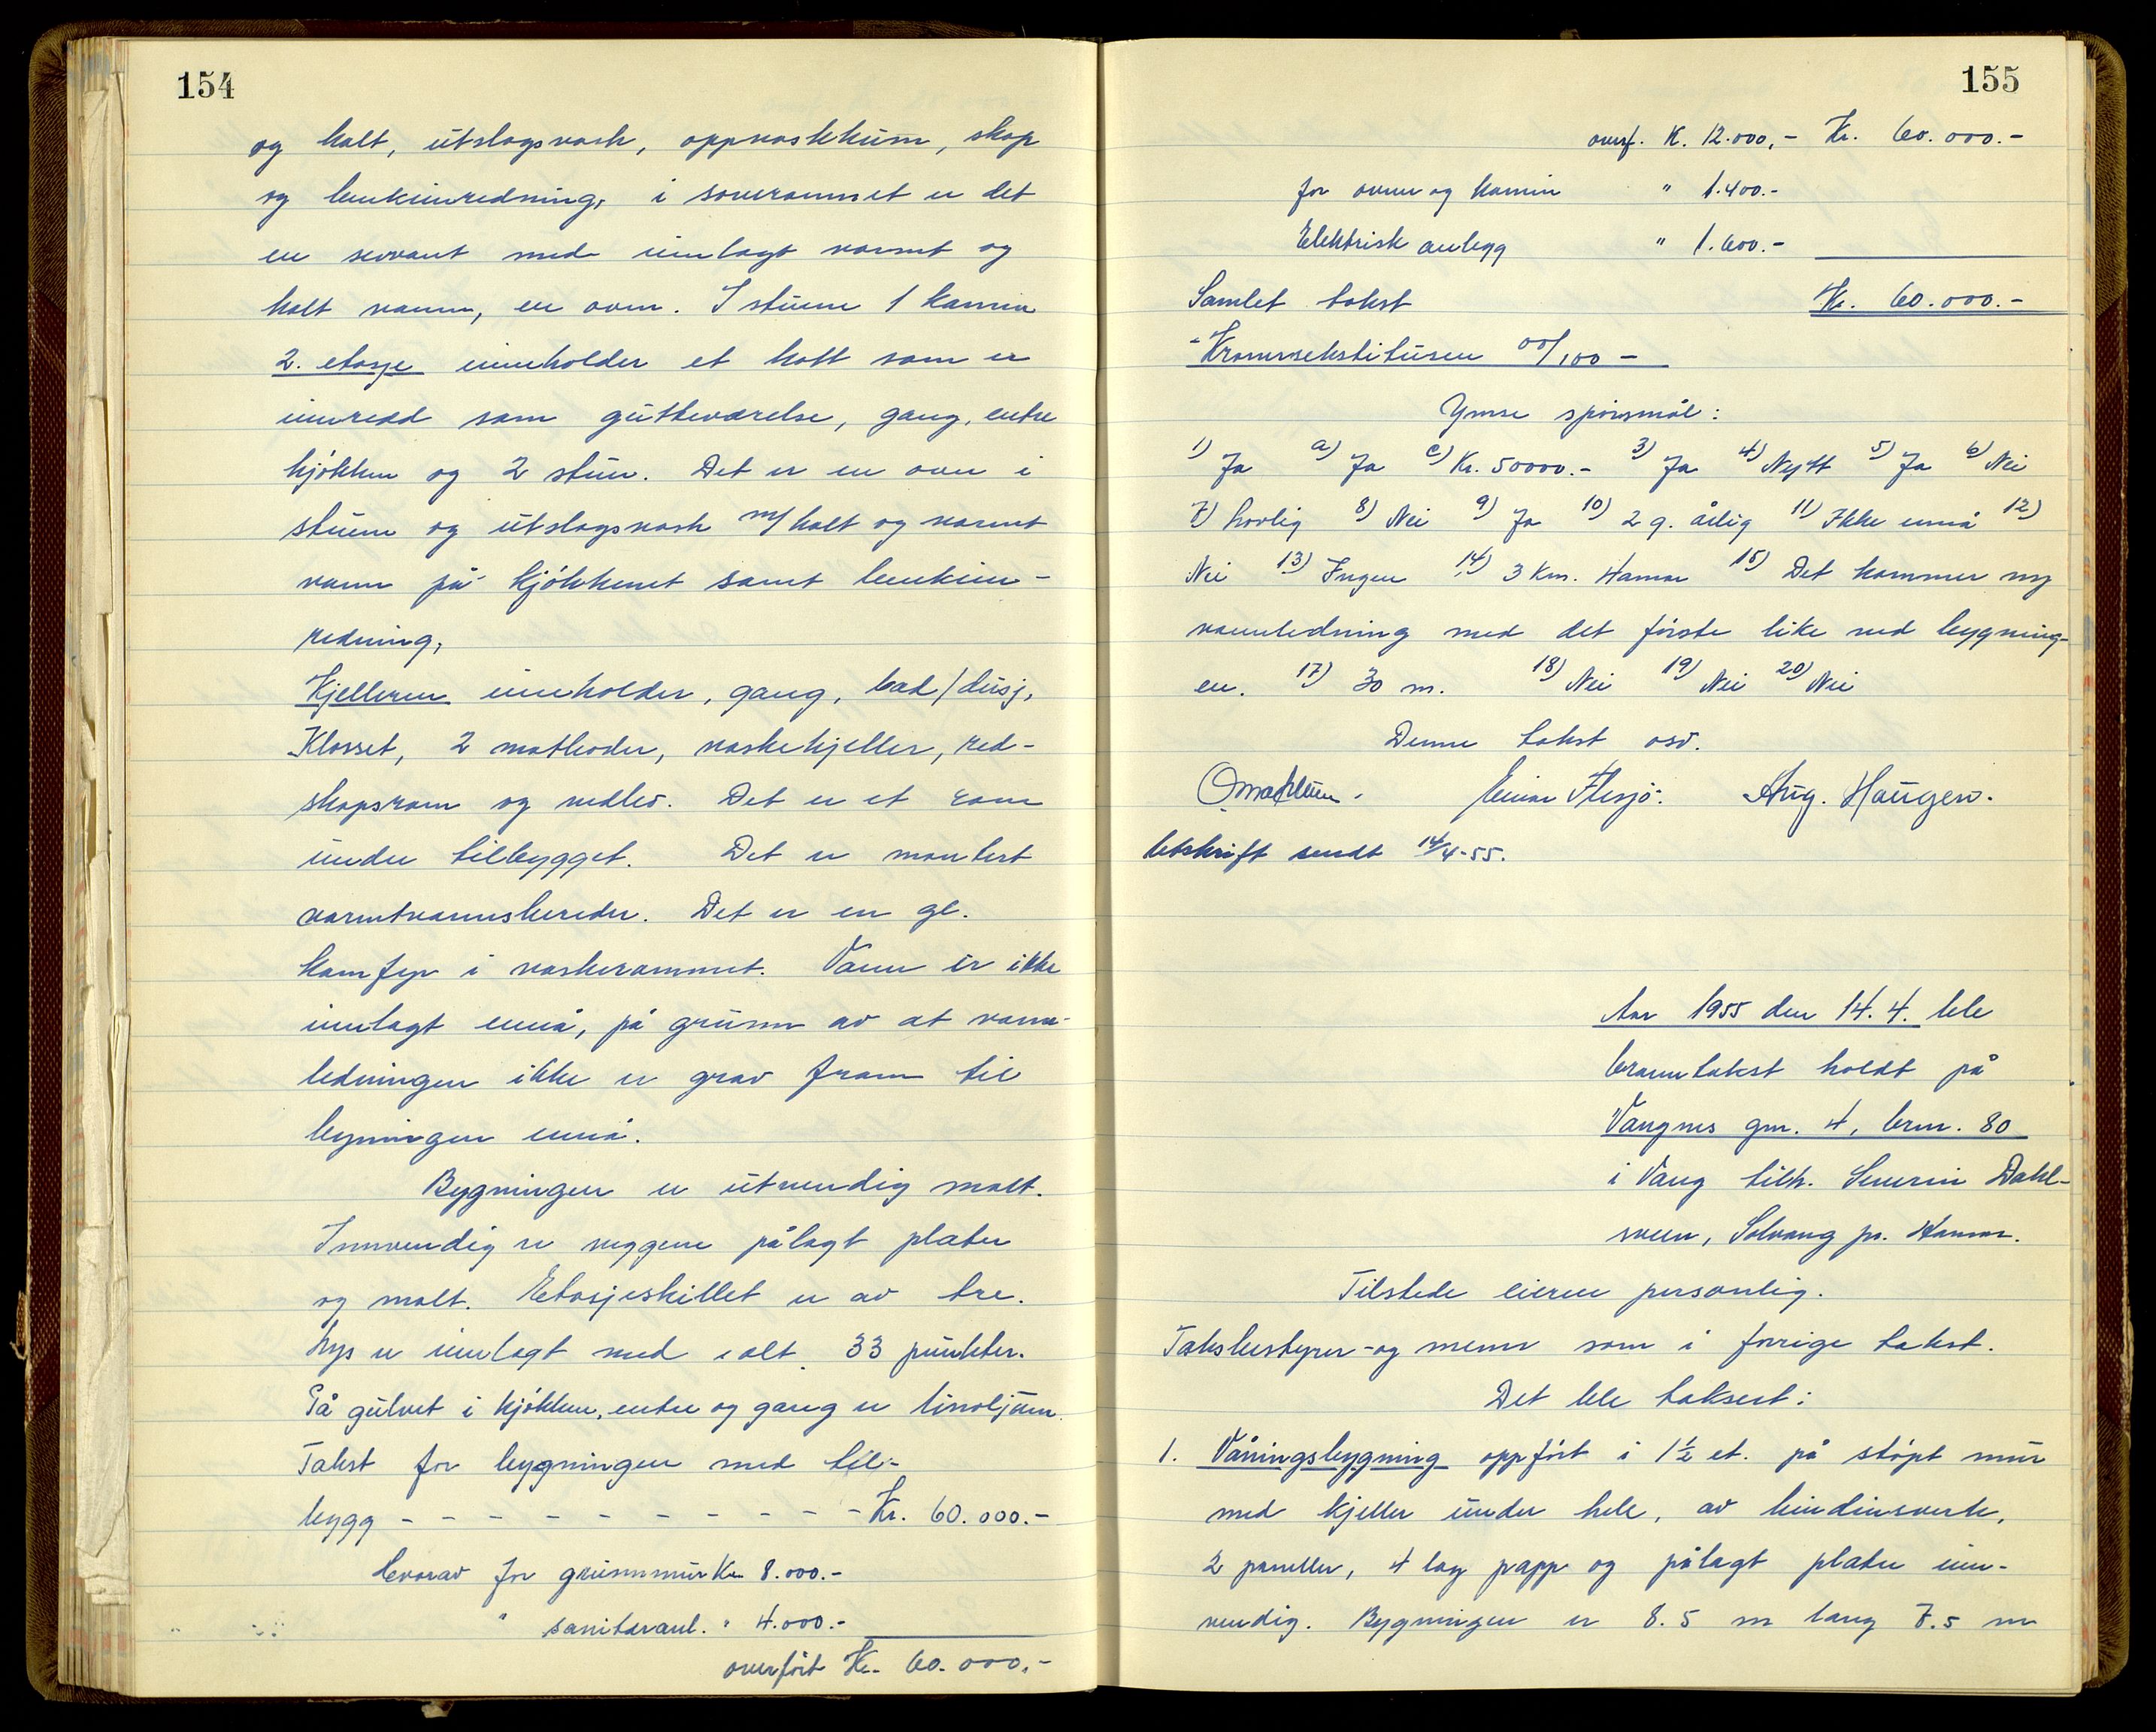 154
og kalt, utslagsvask, oppvaskkum, skap
og benkinredning, i soverommet er det
en servant med innlagt varmt og
kalt vann, en ovn. I stuen 1 kamin
2. etasje inneholder et kott som er
innredd som gutteværelse, gang, entre
kjøkken og 2 stuer. Det er en ovn i
stuen og utslagsvask m/ kalt og varmt
vann på kjøkkenet samt benkinn-
redning,
Kjelleren inneholder, gang, bad/dusj,
Klosset, 2 matboder, vaskekjeller, red-
skapsrom og vedbo. Det er et rom
under tilbygget. Det er montert
varmtvannsbereder. Det er en gl.
komfyr i vaskerommet. Vann er ikke
innlagt ennå, på grunn av at vann-
ledningen ikke er grav fram til
bygningen ennå.
Bygningen er utvendig malt.
Innvendig er veggene pålagt plater
og malt. Etasjeskillet er av tre.
Lys er innlagt med ialt 33 punkter.
På gulvet i kjøkken, entre og gang er linoljum.
Takst for bygningen med til-
bygg - - - - - - - - - - - Kr. 60.000.-
Hvorav for grunnmur Kr. 8.000.-
" sanitæranl. " 4.000.-
overført Kr. 60.000.-
155
overf. K. 12.000,- Kr. 60.000.-
for ovner og kamin " 1.400.-
Elektrisk anlegg " 1.600.-
Samlet takst Kr. 60.000.-
-Kronersekstitusen 00/100 -
Ymse spørsmål:
1) Ja a) Ja c) Kr. 50000.- 3) Ja 4) Nytt 5) Ja 6) Nei
7) Lovlig 8) Nei 9) Ja 10) 2 g. årlig 11) Ikke ennå 12)
Nei 13) Ingen 14) 3 Km. Hamar 15) Det kommer ny
vannledning med det første like ved bygning-
en. 17) 30 m. 18) Nei 19) Nei 20) Nei
Denne takst osv.
Einar Flesjø. Aug. Haugen.
Utskrift sendt 14/4-55.
Aar 1955 den 14. 4. ble
branntakst holdt på
Vangnes gnr. 4, brnr. 80
i Vang tilh. Severin Dahl-
sveen, Solvang pr. Hamar.
Tilstede eieren personlig.
Takstbestyrer- og menn som i forrige takst.
Det ble taksert:
1. Våningsbygning oppført i 1½ et. på støpt mur
med kjeller under hele, av bindinsverk,
2 paneller, 4 lag papp og pålagt plater inn-
vendig. Bygningen er 8.5 m lang 7.5 m